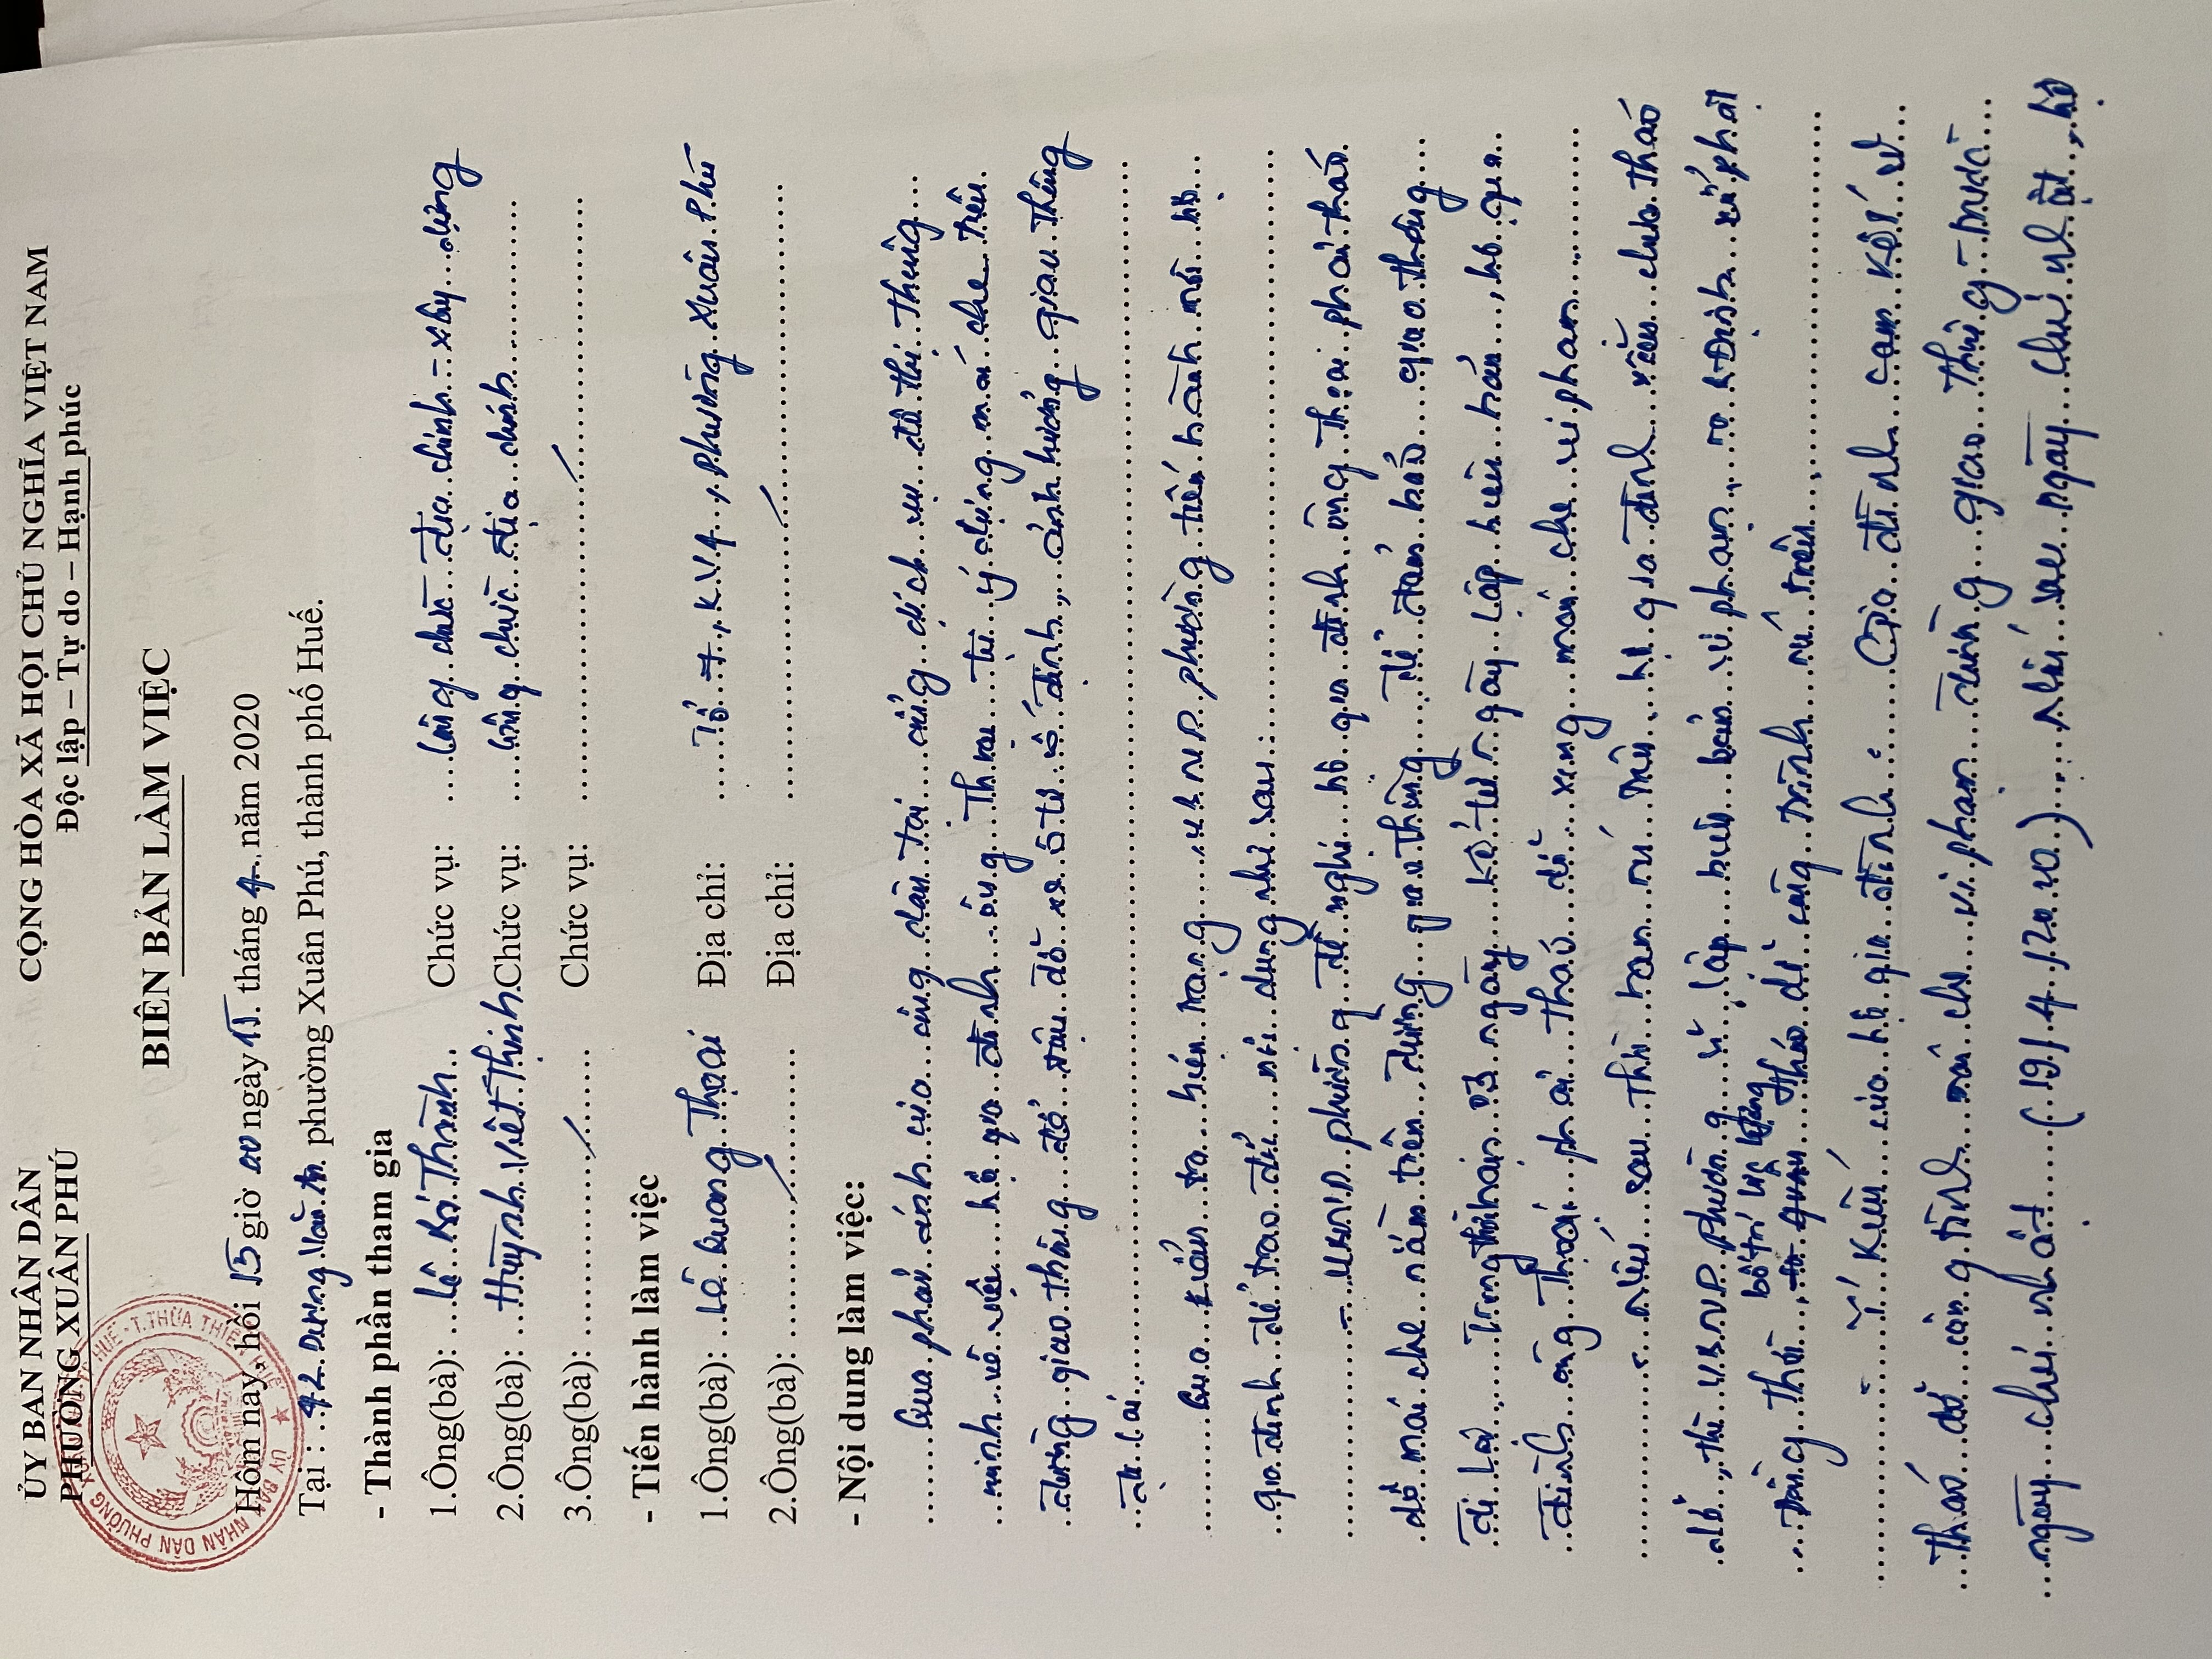 ỦY BAN NHÂN DÂN
PHƯỜNG XUÂN PHÚ
CỘNG HÒA XÃ HỘI CHỦ NGHĨA VIỆT NAM
Độc lập – Tự do – Hạnh phúc
BIÊN BẢN LÀM VIỆC
Hôm nay, hồi 15 giờ 00 ngày 15 tháng 4 năm 2020
Tại : 42 Dương Văn An phường Xuân Phú, thành phố Huế.
- Thành phần tham gia
1.Ông(bà): Lê Bá Thành Chức vụ: Công chức địa chính - xây dựng
2.Ông(bà): Huỳnh Viết Thịnh Chức vụ: công chức địa chính
3.Ông(bà): Chức vụ:
- Tiến hành làm việc
1.Ông(bà): Lê Quang Thoại Địa chỉ: Tổ 7, KV4, phường Xuân Phú
2.Ông(bà): Địa chỉ:
- Nội dung làm việc:
Qua phản ánh của công dân tại cổng dịch vụ đô thị thông
minh về việc hộ gia đình ông Thoại tự ý dựng mái che trên
đường giao thông để đậu đỗ xe ô tô cố định, ảnh hưởng giao thông
đi lại
Qua kiểm tra hiện trạng UBND phường tiến hành mời hộ
gia đình để trao đổi nội dung như sau:
- UBND phường đề nghị hộ gia đình ông Thoại phải tháo
dỡ mái che nằm trên đường giao thông để đảm bảo giao thông
đi lại. Trong thời hạn 03 ngày kể từ ngày lập biên bản, hộ gia
đình ông Thoại phải tháo dỡ xong mái che vi phạm
- Nếu sau thời hạn nói trên, hộ gia đình vẫn chưa tháo
dỡ, thì UBND phường sẽ lập biên bản vi phạm, ra QĐịnh xử phạt
đồng thời bố trí lực lượng tháo dỡ công trình nói trên
- Ý kiến của hộ gia đình: Gia đình cam kết sẽ
tháo dỡ công trình mái che vi phạm đường giao thông trước
ngày chủ nhật (19/4/2020). Nếu sau ngày chủ nhật, hộ